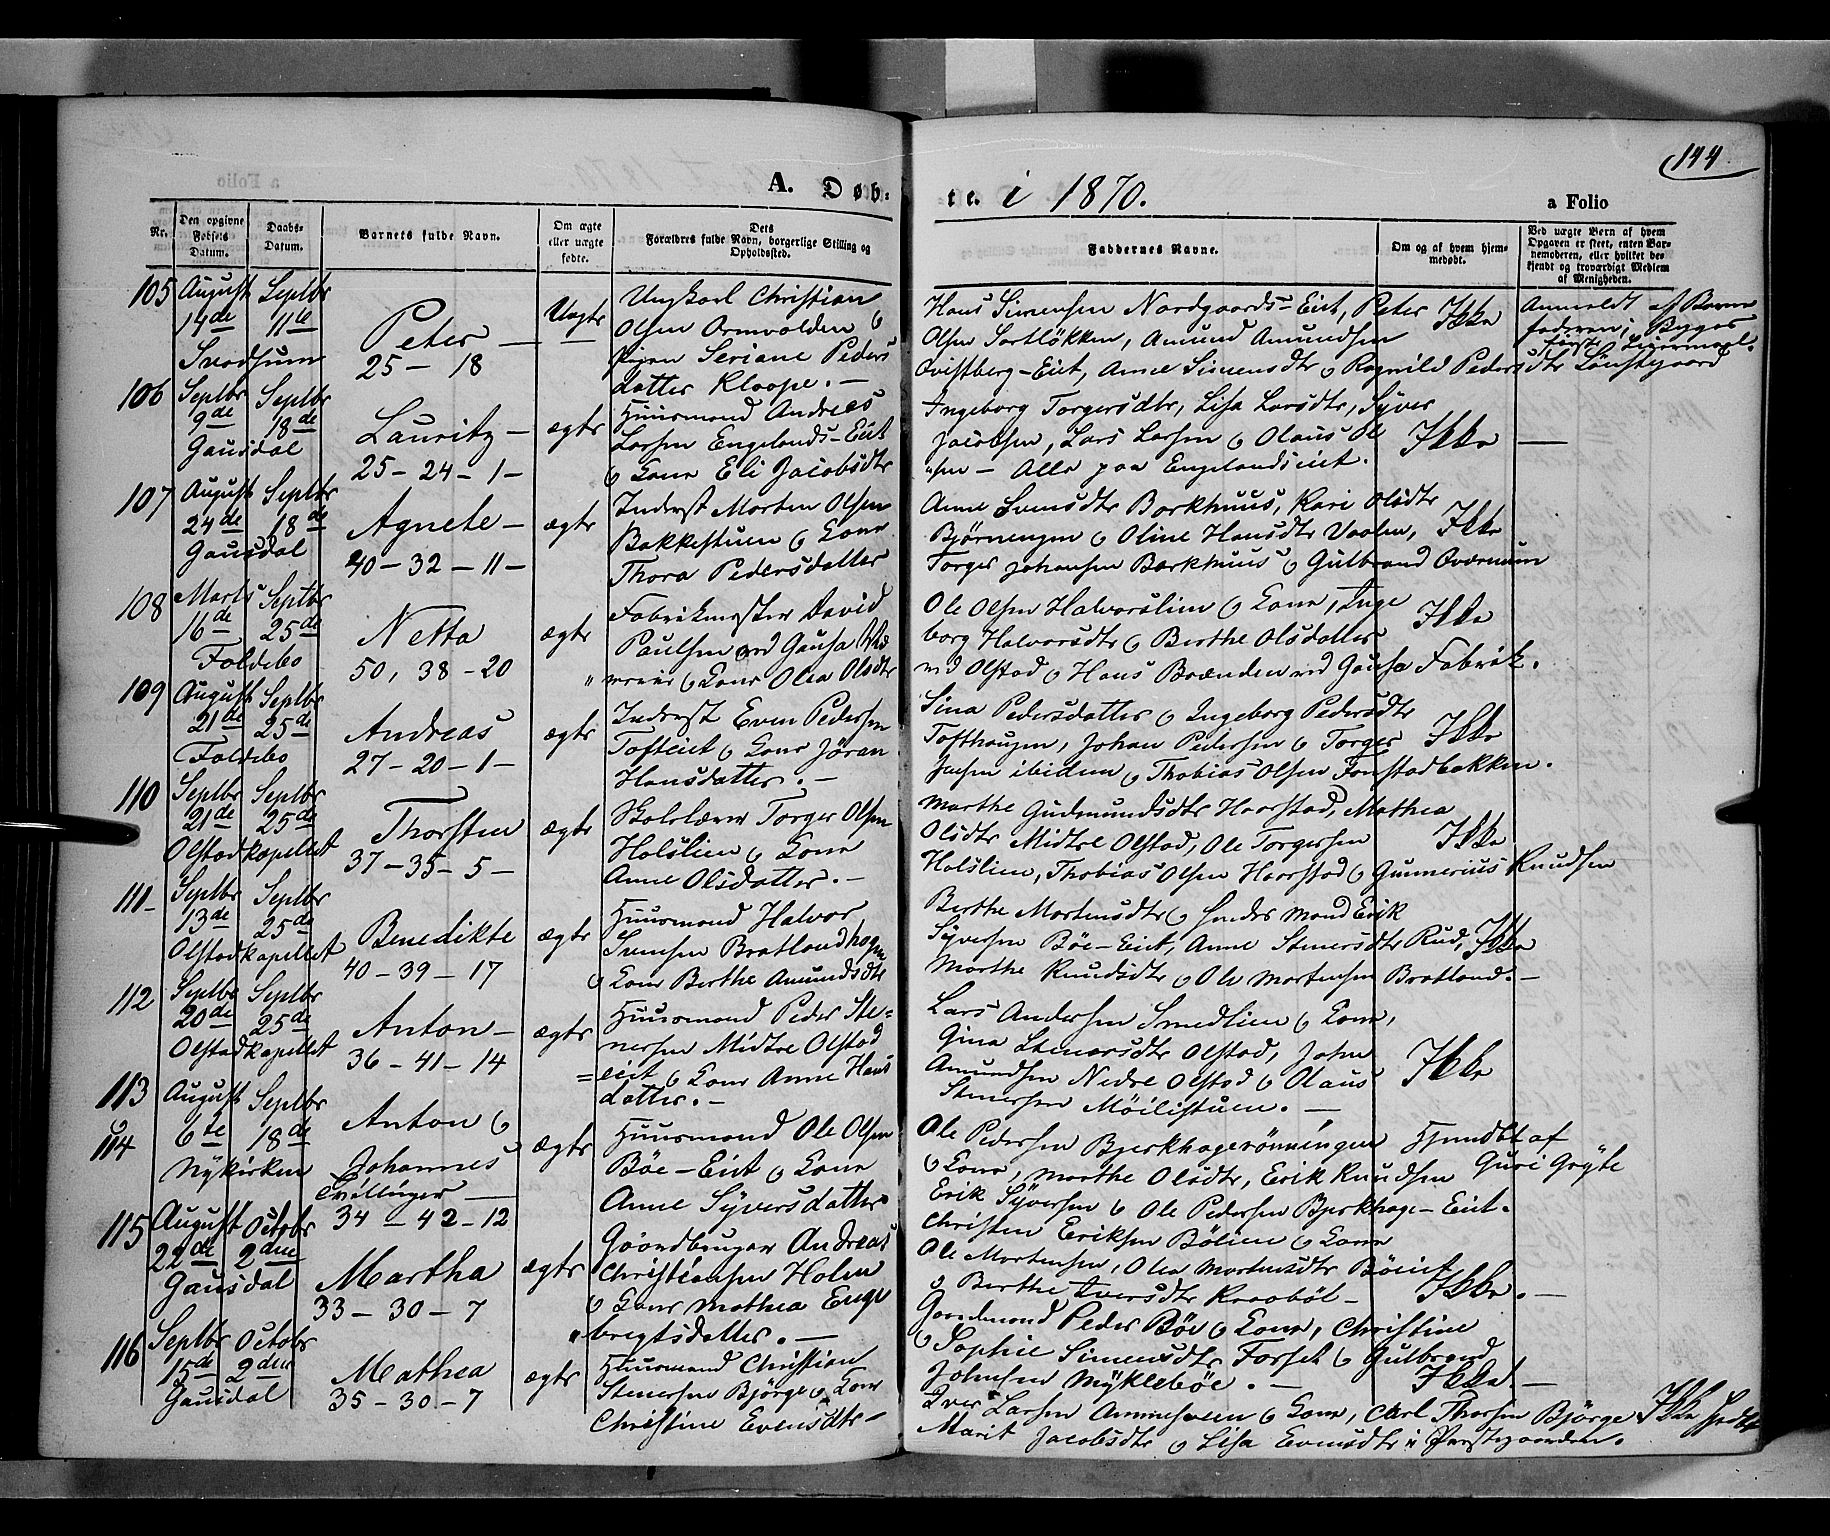 144
A. Døb-
te. i 1870.
a Folio
Nr.
Den opgivne Fødsels Datum.
Daabs-Datum.
Barnets fulde Navn.
Om ægte eller uægte fødte.
Dets Forældres fulde Navn, borgerlige Stilling og Opholdssted.
Faddernes Navne.
Om og af hvem hjemmedøbt.
Ved uægte Børn af hvem Opgaven er skeet, enten Barnemoderen, eller hvilket bekjendt og troværdigt Medlem af Menigheden.
105 August 14de Septbr 11te
Svadsum
Peter
25 - 18
Uægte
Ungkarl Christian
Olsen Ormvolden &
Pigen Seriane Peders
datter Kloope. -
Hans Simensen Nordgaards-Eiet, Peter
Olsen Sortløkken, Amund Amundsen
Qvistberg-Eiet, Anne Simensdtr & Ragnild Pedersdtr Lønstegaard
Ikke
Anmeldt af Barne
faderen;
106 Septbr 9de Septbr 18de
Gausdal
Lauritz -
25 - 24 - 1 -
ægte
Huusmand Andreas
Larsen Engelands-Eiet
& Kone Eli Jacobsdtr
Ingeborg Torgersdtr, Lisa Larsdtr, Syver
Jacobsen, Lars Larsen & Olaus Ol
"sen - Alle paa Engelandseiet.
Ikke
107 August 24de Septbr 18de
Gausdal
Agnete -
40 - 32 - 11 -
ægte
Inderst Morten Olsen
Bakkestuen & Kone
Thora Pedersdatter
Anne Svensdtr Barkhuus, Kari Olsdtr
Bjørnengen & Oline Hansdtr Vaalen,
Torger Johansen Barkhuus & Gulbrand Qværnum
Ikke
108 Marts 16de Septbr 25de
Follebo
Netta
50, 38 - 20
ægte
Fabrikmester David
Paulsen ved Gausa
& Kone Olea Olsdtr
Ole Olsen Halvorslien & Kone, Inge
borg Halvorsdtr & Berthe Olsdatter
ved Olstad & Hans Brænden ved Gausa Fabrik.
Ikke
109 August 21de Septbr 25de
Follebo
Andreas
27 - 20 - 1 -
ægte
Inderst Even Pedersen
Tofteiet & Kone Jøran
Hansdatter. -
Sina Pedersdatter & Ingeborg Pedersdtr
Tofthaugen, Johan Pedersen & Torger
ibidem & Thobias Olsen Fonstadbakken.
Ikke
110 Septbr 21de Septbr 25de
Olstadkapellet
Thorsten
37 - 35 - 5 -
ægte
Skolelærer Torger Olsen
Holslien & Kone
Anne Olsdatter. -
Marthe Gudmundsdtr Haarstad, Mathea
Olsdtr Midtre Olstad, Ole Torgersen
Holslien, Thobias Olsen Haarstad & Gunnerius Knudsen
Ikke
111 - Septbr 13de Septbr 25de
Olstadkapellet
Benedikte
40 - 39 - 17
ægte
Huusmand Halvor
Svensen Bratlandhagen
& Kone Berthe Amundsdtr
Berthe Mortensdtr & Mand Erik
Syversen Bøe-Eiet, Anne Stenersdtr Rud,
Marthe Knudsdtr & Ole Mortensen Bratland. -
Ikke
112 Septbr 20de Septbr 25de
Olstadkapellet
Anton -
36 - 41 - 14
ægte
Huusmand Peder Ste=
nersen Midtre Olstad
=eiet & Kone Anne Hans
datter. -
Lars Andersen Smedlien & Kone,
Gina Stenersdtr Olstad, John
Amundsen Nedre Olstad & Olaus
Stenersen Møilistuen. -
Ikke
113
&
114 August 6te Septbr 18de
Nykirken
Anton &
Johannes
Tvillinger
34 - 42 - 12
ægte
Huusmand Ole Olsen
Bøe-Eiet & Kone
Anne Syversdatter
Ole Pedersen Bjerkhagerønningen
& Kone, Marthe Olsdtr, Eerik Knudsen
Erik Syversen & Ole Pedersen Bjerkhage-Eiet.
Hjemdøbt af
Guri Grøte
115 August 22de Octobr 2den
Gausdal
Martha
33 - 30 - 7
ægte
Gaardbruger Andreas
Christiansen Holen
& Kone Mathea Enge
"bregtsdatter. -
Christen Eriksen Bølien & Kone
Ole Mortensen, Olea Mortensdtr Bøeiet
& Berthe Iversdtr Kraabøl -
Ikke. -
116 Septbr 15de Octobr 2den
Gausdal
Mathea
35 - 30 - 7
ægte
Huusmand Christian
Stenersen Bjørge & Kone
Christine Evensdtr -
Gaardmand Peder Bøe & Kone, Christine
& Sophie Simensdtr Forset & Gulbrand
Johnsen Myklebøe. -
Ikke. -
Iver Larsen Ammesveen & Kone, Carl Thorsen Bjørge
Marit Jacobsdtr & Lisa Evensdtr i Præstegaarden.
Ikke